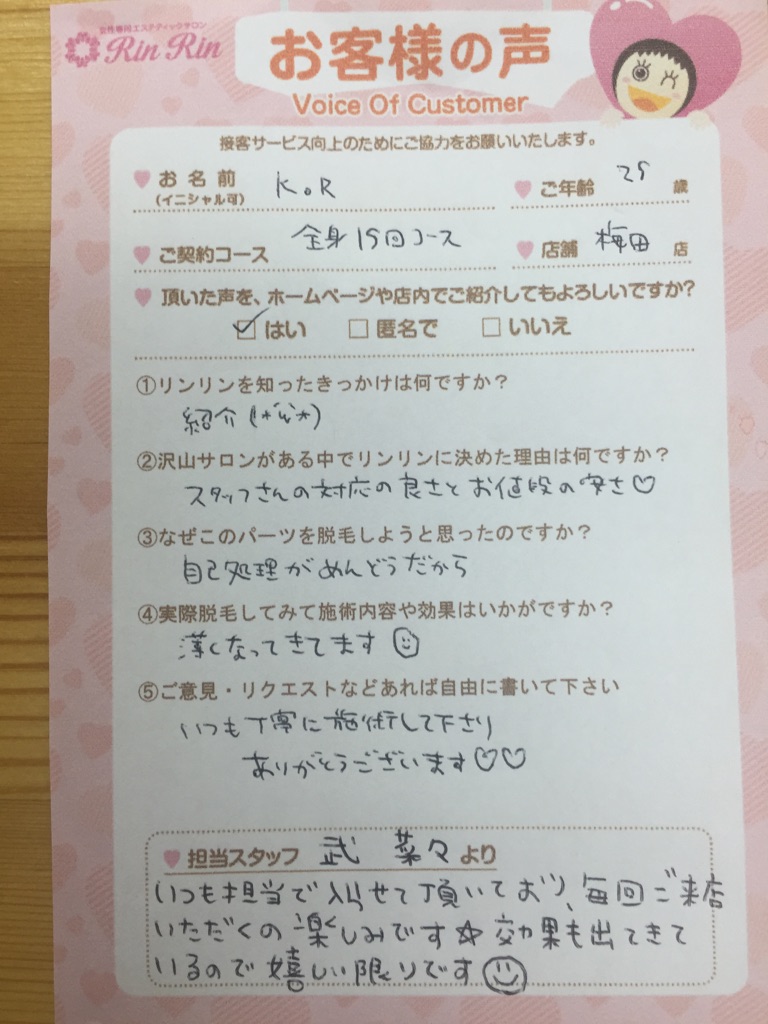 女性専用エステティックサロン
Rin Rin
お客様の声
Voice Of Customer
接客サービス向上のためにご協力をお願いいたします。
お名前 K.R ご年齢 25 歳
(イニシャル可)
ご契約コース 全身15回コース 店舗 梅田 店
頂いた声を、ホームページや店内でご紹介してもよろしいですか?
はい 匿名で いいえ
①リンリンを知ったきっかけは何ですか?
紹介
②沢山サロンがある中でリンリンに決めた理由は何ですか?
スタッフさんの対応の良さとお値段の安さ♡
③なぜこのパーツを脱毛しようと思ったのですか?
自己処理がめんどうだから
④実際脱毛してみて施術内容や効果はいかがですか?
薄くなってきてます
⑤ご意見・リクエストなどあれば自由に書いて下さい
いつも丁寧に施術して下さり
ありがとうございます♡♡
担当スタッフ 武 菜々 より
いつも担当で入らせて頂いており、毎回ご来店
いただくの楽しみです☆効果も出てきて
いるので嬉しい限りです